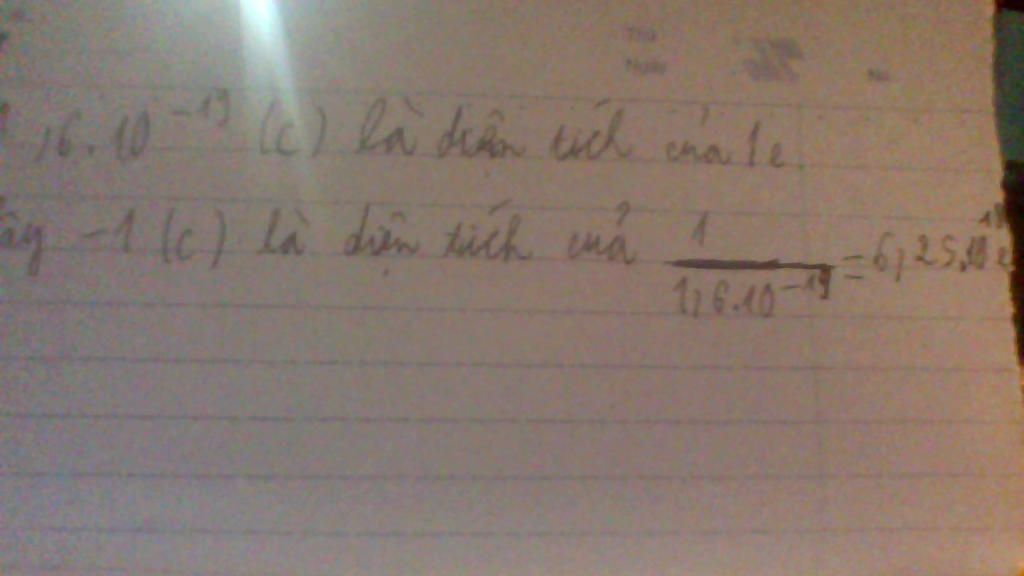 1,6.10⁻¹⁹ (c) là điện tích của 1e.
ây -1 (c) là điện tích của 1/1,6.10⁻¹⁹ = 6,25.10¹⁸ e